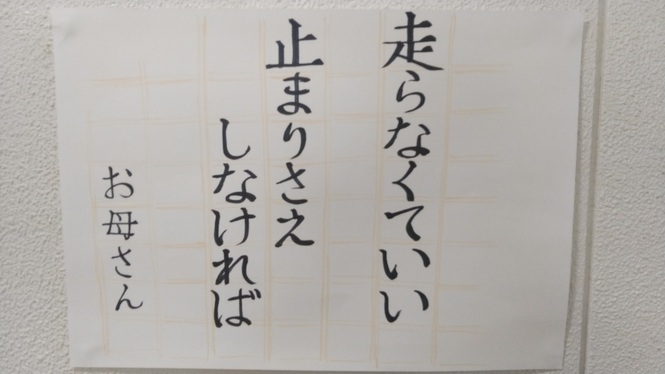 走らなくていい
止まりさえ
しなければ
お母さん